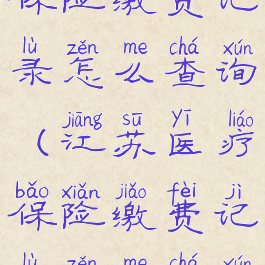 保险缴费记
lù zěn me chá xún
录怎么查询
jiāng sū yī liáo
（江苏医疗
bǎo xiǎn jiǎo fèi jì
保险缴费记
lù zěn me chá xún